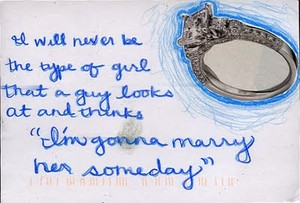 I will never be
the type of girl
that a guy looks
at and thinks
"I'm gonna marry
her someday"